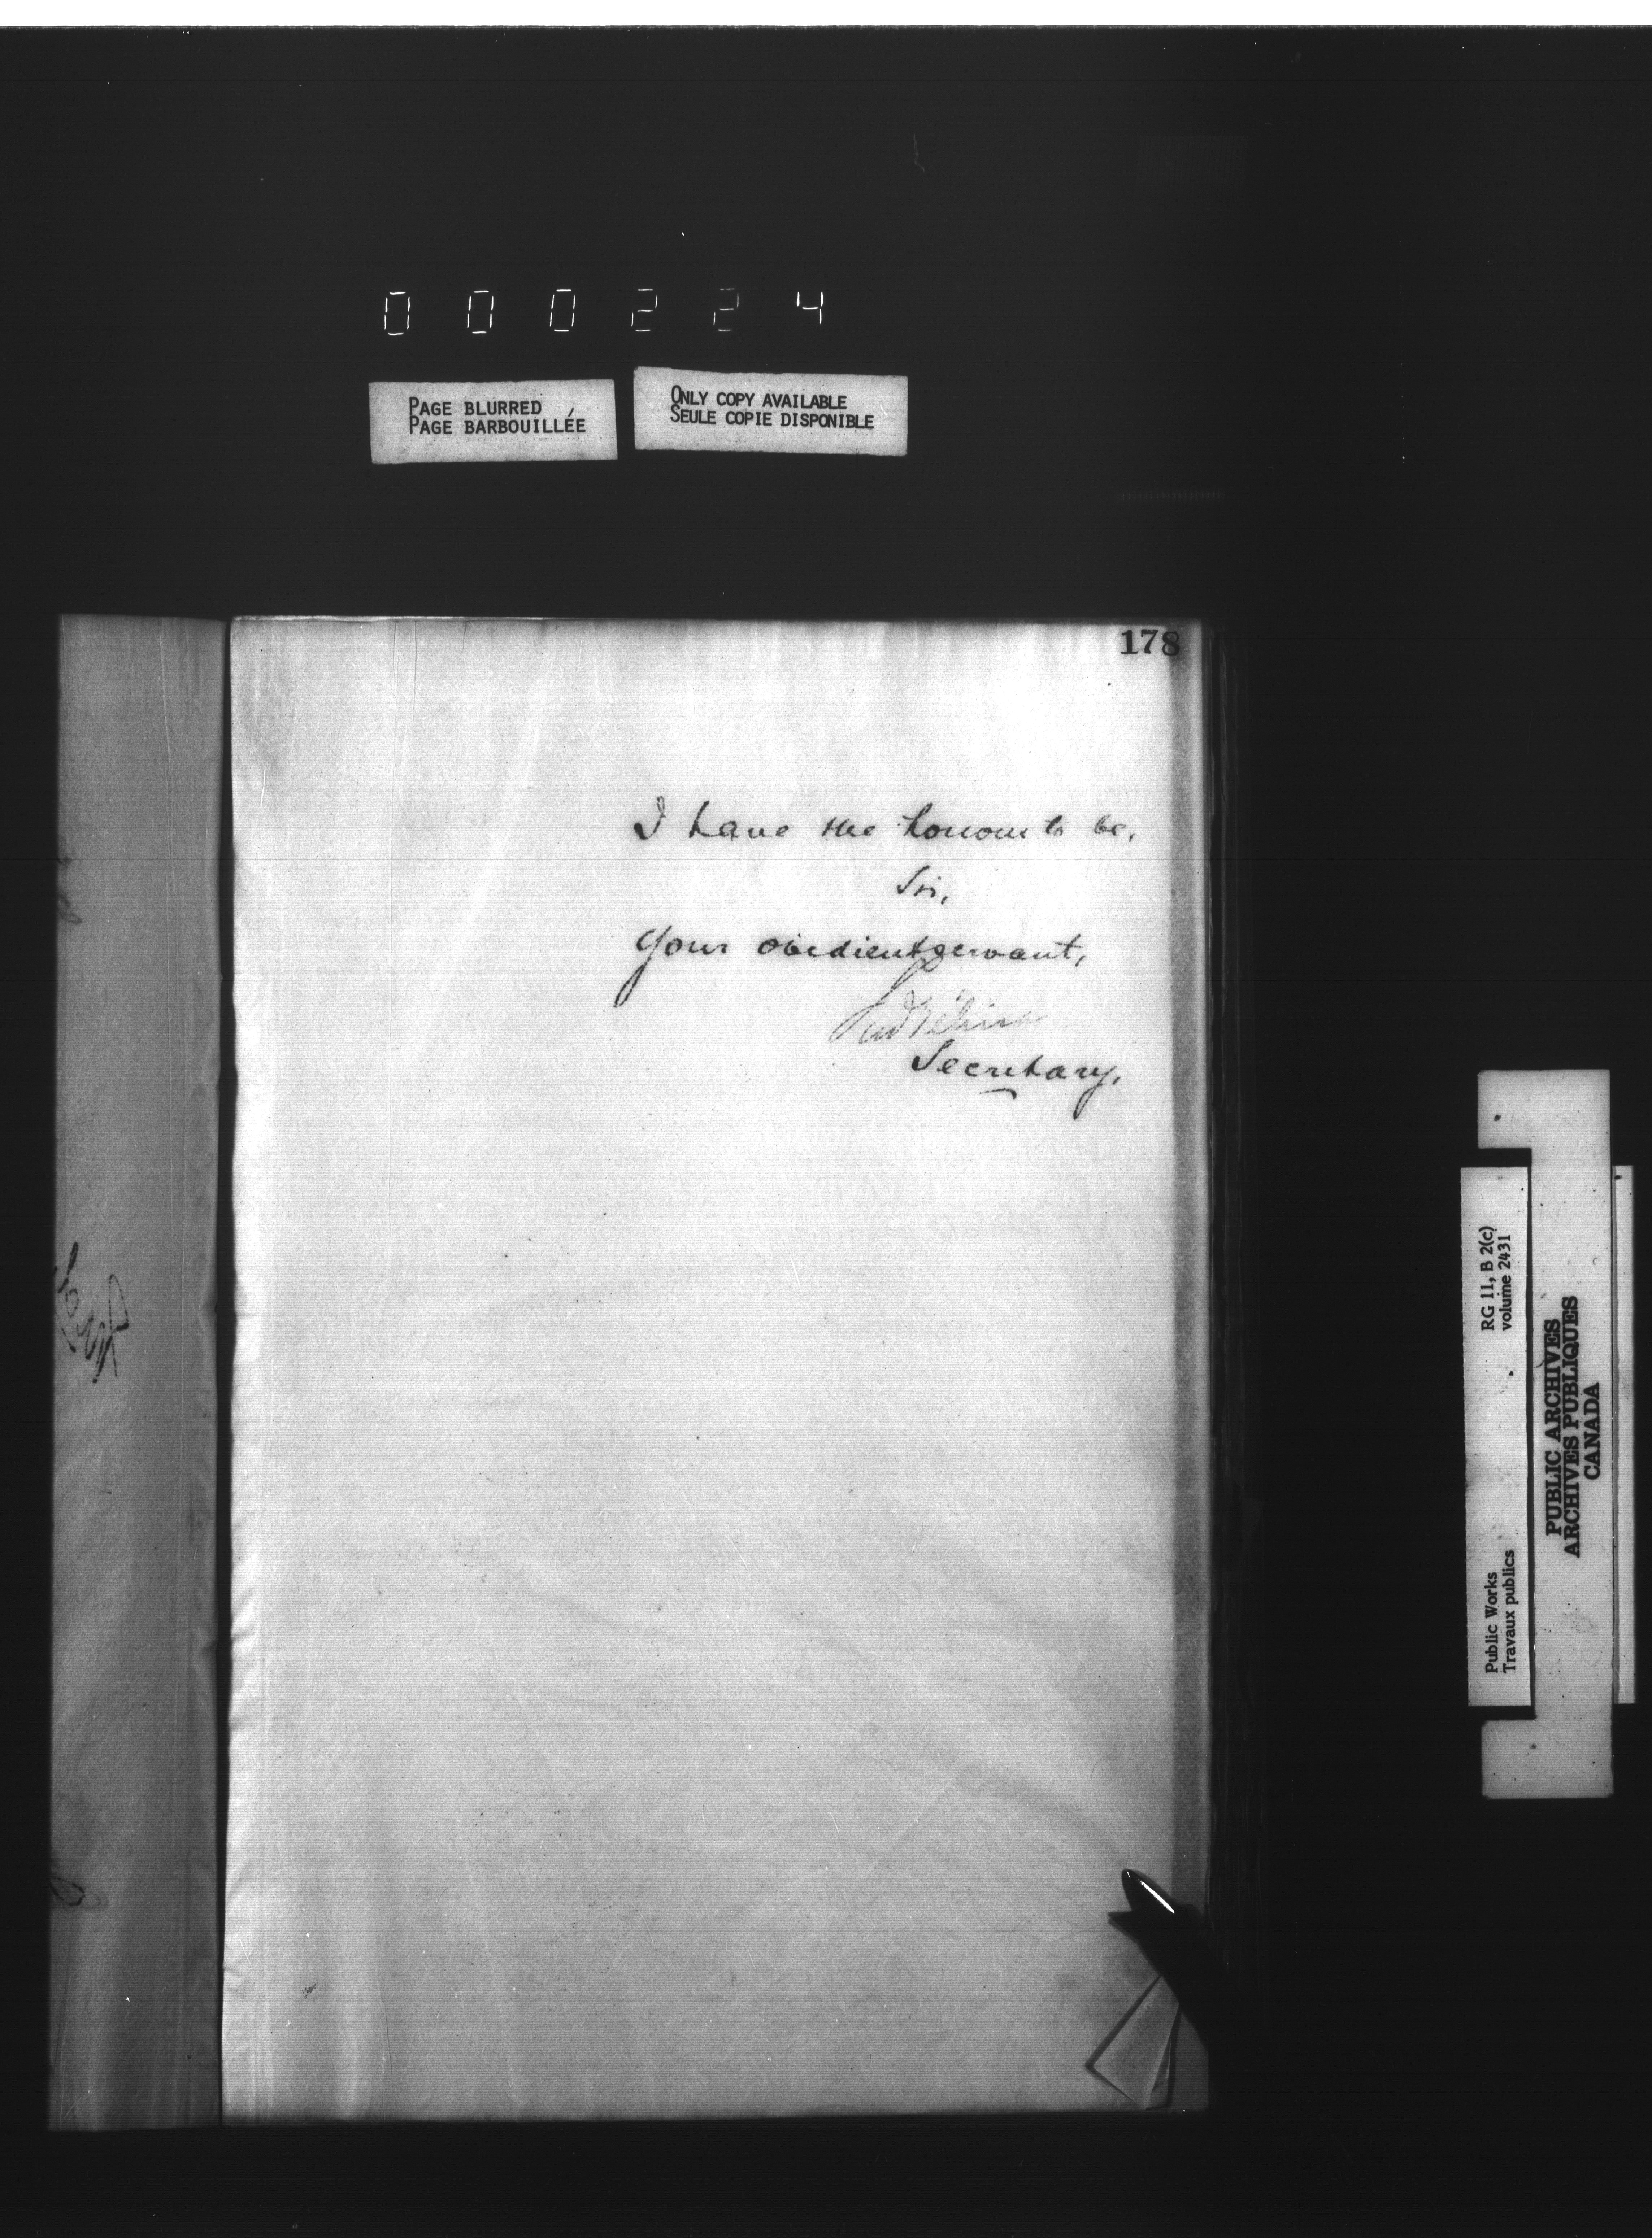 000224
PAGE BLURRED
PAGE BARBOUILLÉE
ONLY COPY AVAILABLE
SEULE COPIE DISPONIBLE
178
I have the honour to be,
Sir,
Your obedient servant,
Secretary.
Public Works
Travaux publics
RG 11, B 2(c)
volume 2431
PUBLIC ARCHIVES
ARCHIVES PUBLIQUES
CANADA